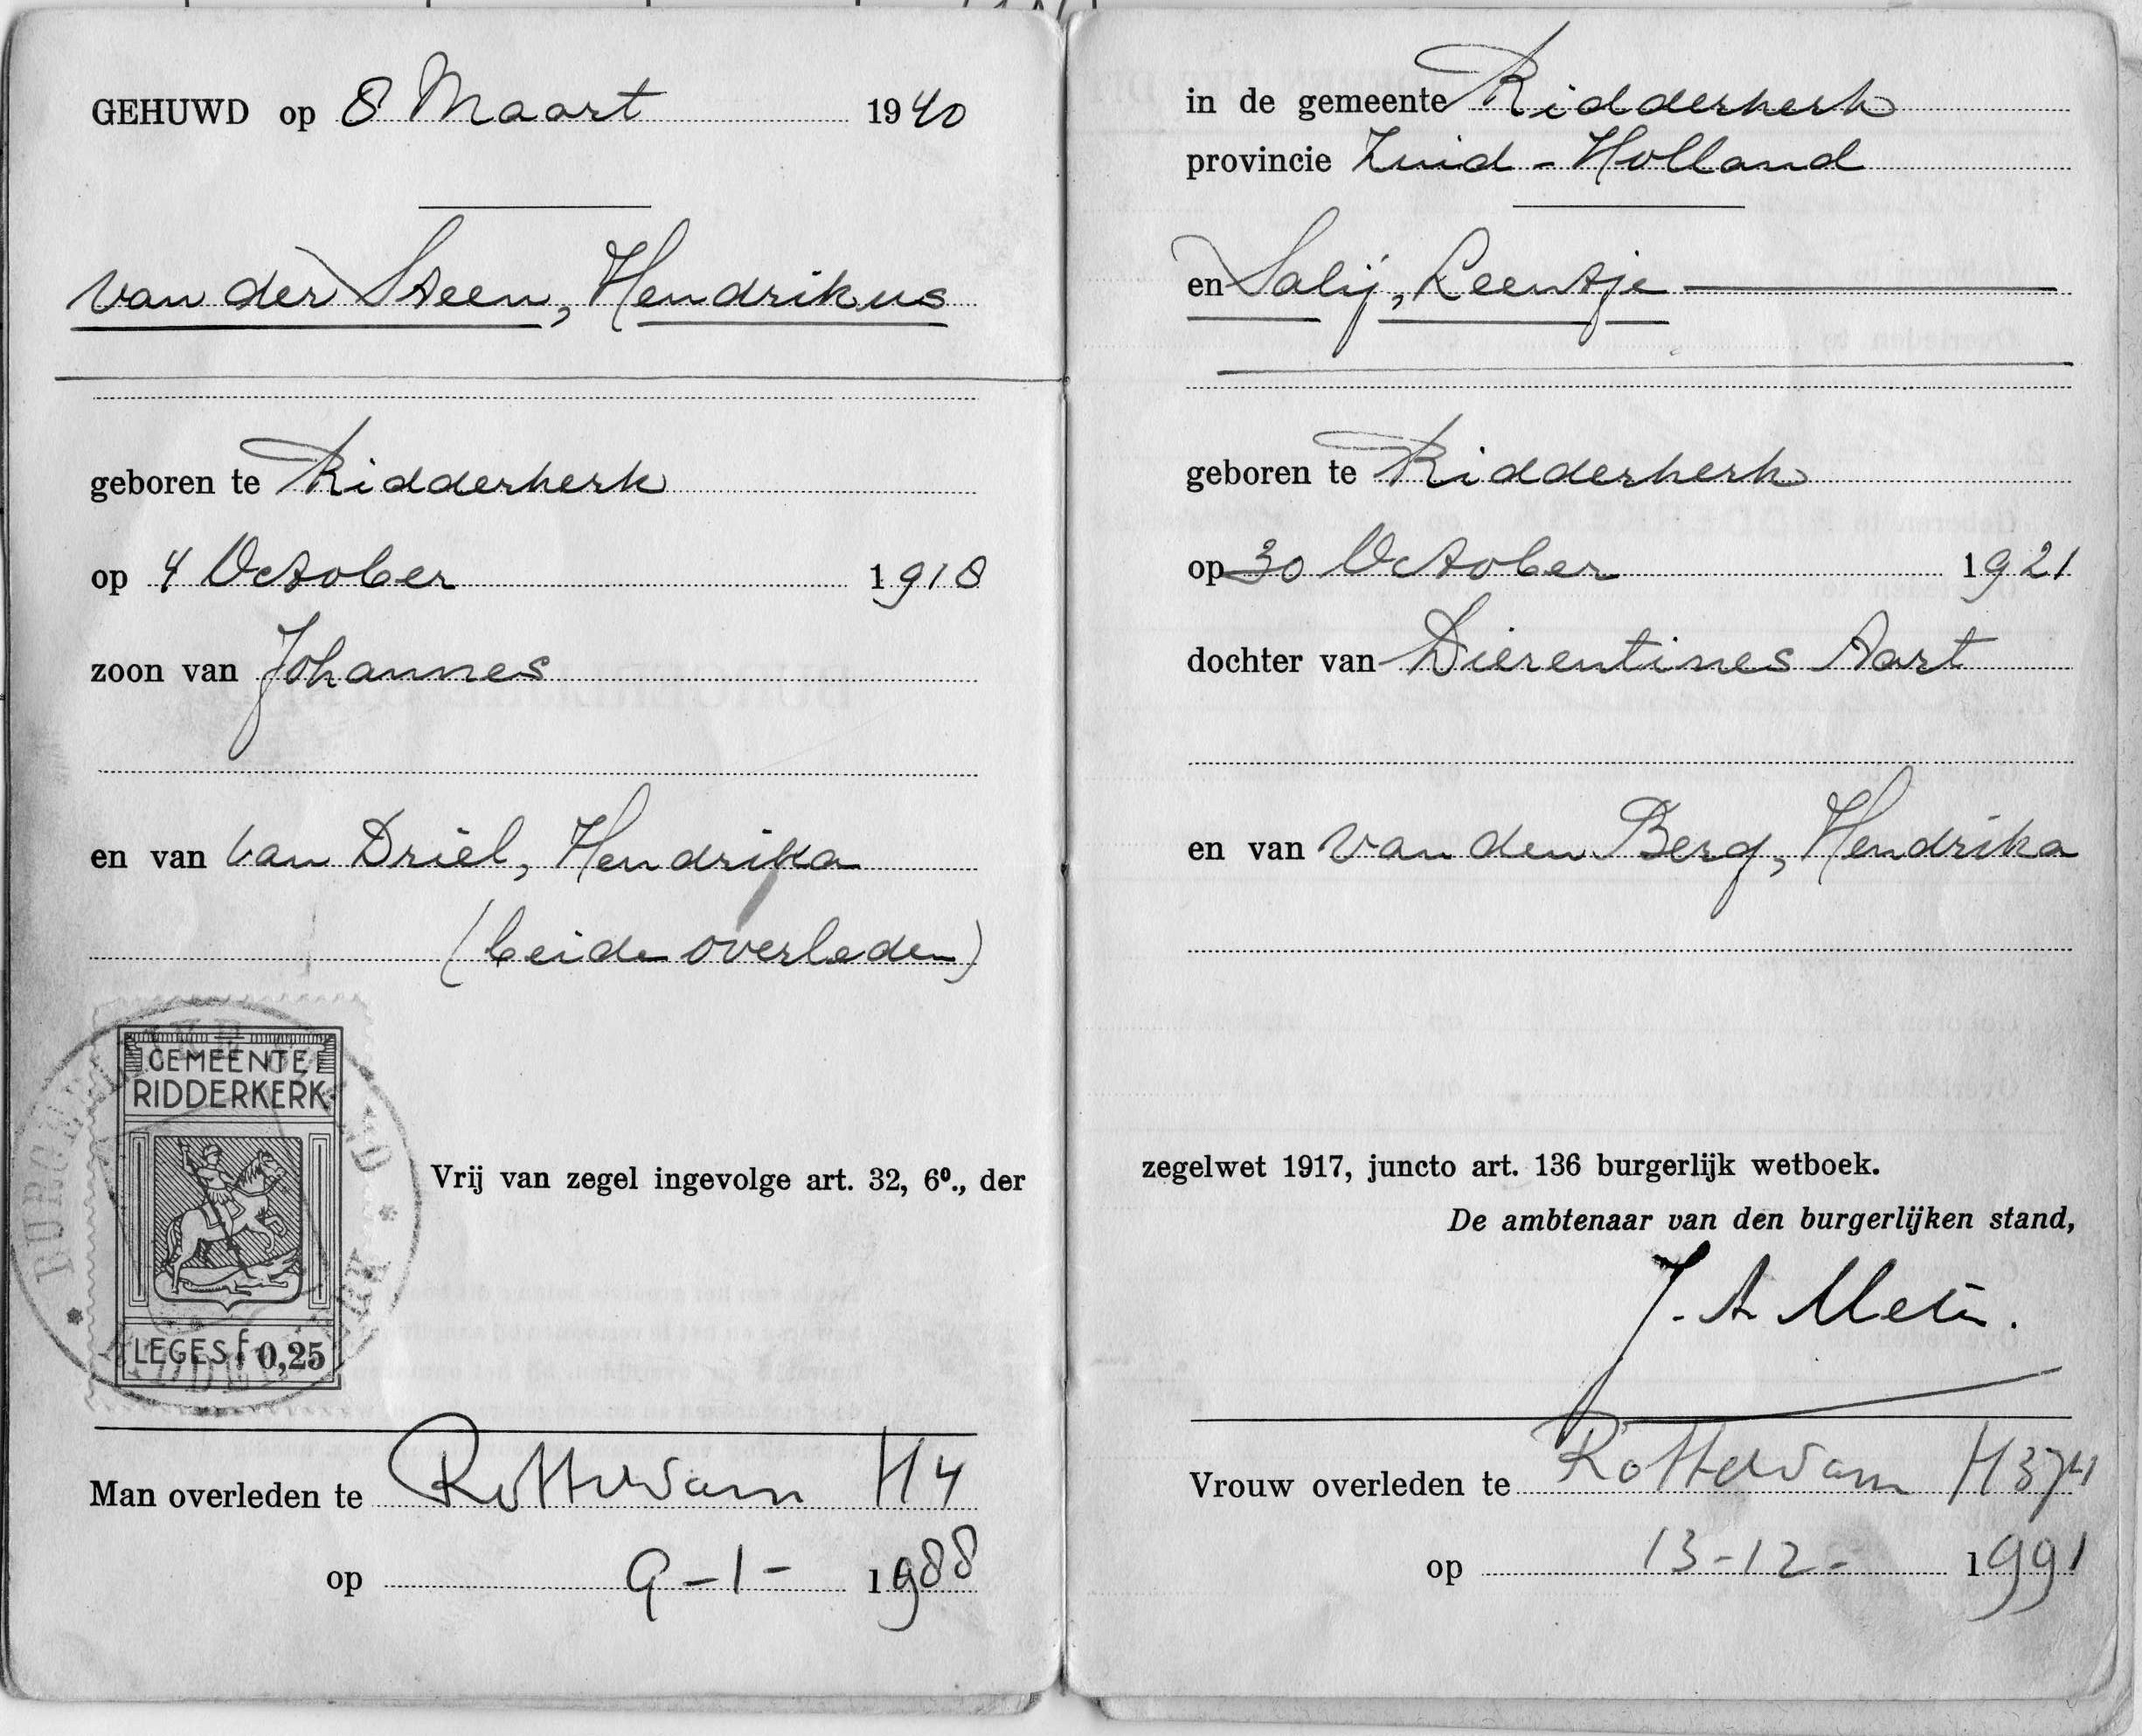 GEHUWD op 8 Maart 1940
van der Steen, Hendrikus
geboren te Ridderkerk
op 4 October 1918
zoon van Johannes
en van van Driel, Hendrika
(beide overleden)
GEMEENTE
RIDDERKERK
LEGES f 0,25
BURGERLIJKE STAND
* RIDDERKERK *
Vrij van zegel ingevolge art. 32, 6⁰., der
Man overleden te Rotterdam H4
op 9-1- 1988
in de gemeente Ridderkerk
provincie Zuid-Holland
en Salij, Leentje
geboren te Ridderkerk
op 30 October 1921
dochter van Dierentines Aart
en van van den Berg, Hendrika
zegelwet 1917, juncto art. 136 burgerlijk wetboek.
De ambtenaar van den burgerlijken stand,
J. A
Vrouw overleden te Rotterdam H374
op 13-12- 1991